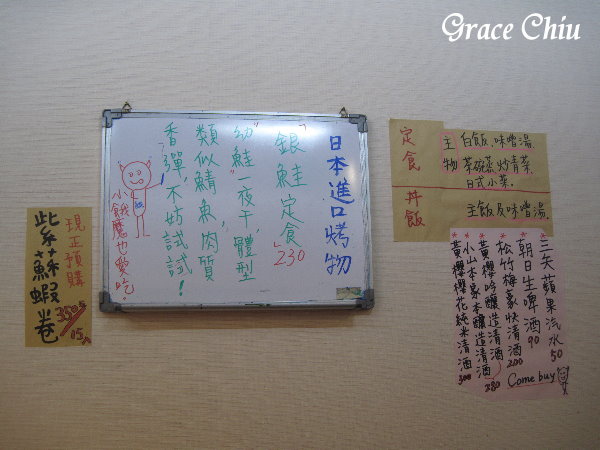 Grace Chiu
日本進口烤物
"銀鮭定食"230
"幼鮭"一夜干"體型
類似鯖魚肉質
香彈,不妨試試!
小餓魔也愛吃!
現正預購
紫蘇蝦卷
350元/15入
定食
主 白飯,味噌湯
物 茶碗蒸,炒青菜
日式小菜
丼飯
主飯及味噌湯
*三矢蘋果汽水 50
*朝日生啤酒 90
*松竹梅豪快清酒 200
*黃櫻吟釀造清酒
*小山本家本釀造清酒 280
*黃櫻櫻花純米清酒 300
Come buy